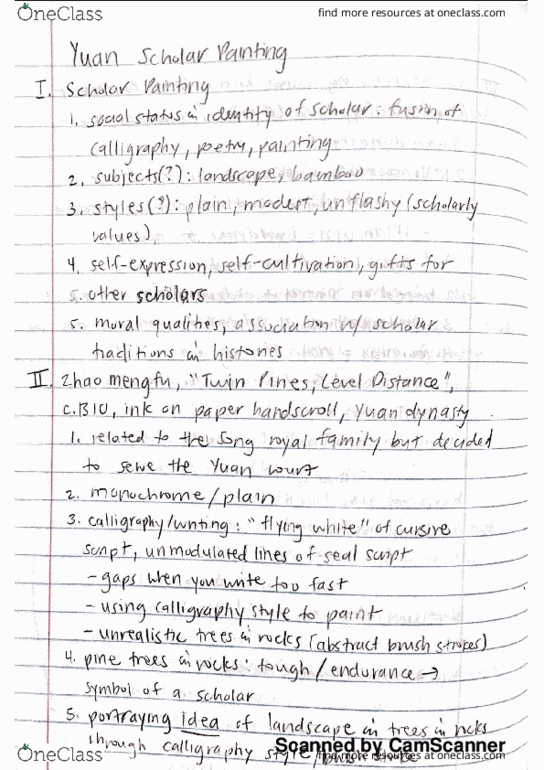 OneClass
find more resources at oneclass.com
Yuan Scholar Painting
I. Scholar Painting
1. social status in identity of scholar: fusion of
calligraphy, poetry, painting
2. subjects(?): landscape, bamboo
3. styles(?): plain, modest, unflashy (scholarly
values)
4. self-expression, self-cultivation, gifts for
5. other scholars
5. moral qualities, association w/ scholar
traditions in histories
II. Zhao mengfu, "Twin Pines, Level Distance",
c.1310, ink on paper handscroll, Yuan dynasty
1. related to the Song royal family but decided
to serve the Yuan court
2. monochrome/plain
3. calligraphy/writing: "flying white" of cursive
script, unmodulated lines of seal script
- gaps when you write too fast
- using calligraphy style to paint
- unrealistic trees in rocks (abstract brush strokes)
4. pine trees in rocks: tough/endurance →
symbol of a scholar
5. portraying idea of landscape in trees in rocks
through calligraphy style
Scanned by CamScanner
OneClass
find more resources at oneclass.com